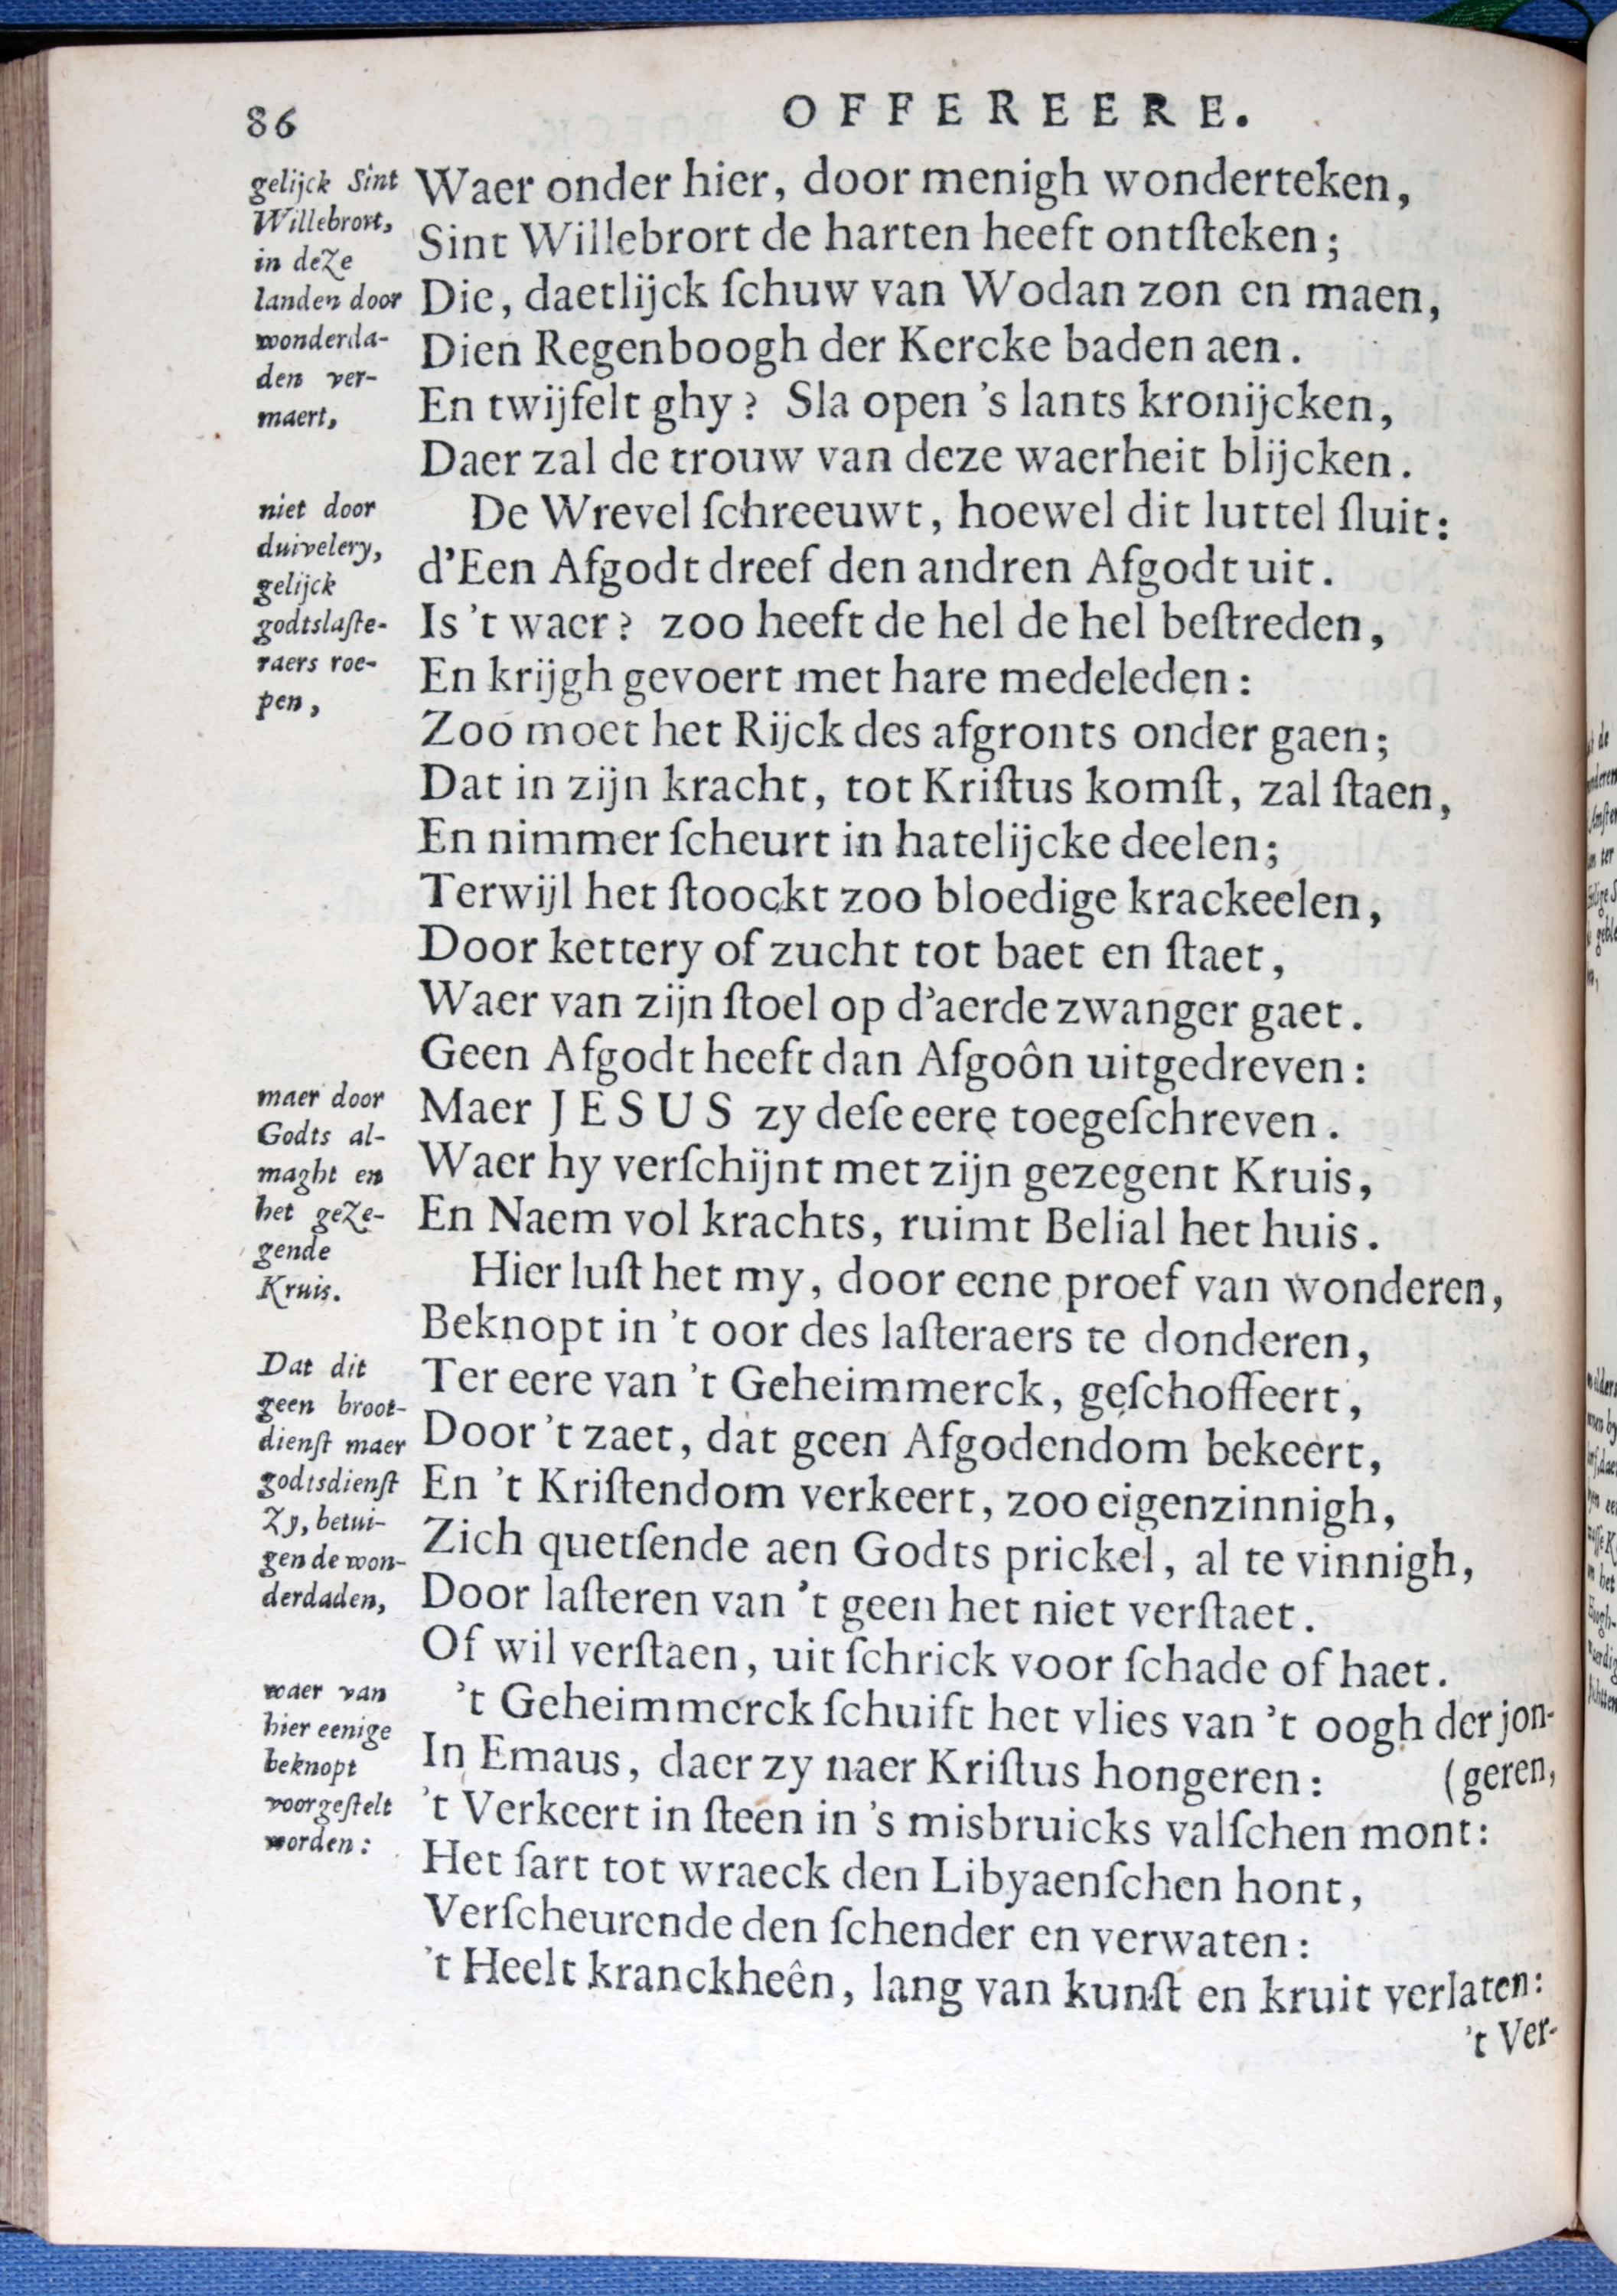 86
OFFEREERE.
gelijck Sint
Willebrort,
in deze
landen door
wonderda-
den ver-
maert,
Waer onder hier, door menigh wonderteken,
Sint Willebrort de harten heeft ontſteken;
Die, daetlijck ſchuw van Wodan zon en maen,
Dien Regenboogh der Kercke baden aen.
En twijfelt ghy? Sla open 's lants kronijcken,
Daer zal de trouw van deze waerheit blijcken.
niet door
duivelery,
gelijck
godtslaſte-
raers roe-
pen,
De Wrevel ſchreeuwt, hoewel dit luttel ſluit:
d'Een Afgodt dreef den andren Afgodt uit.
Is 't waer? zoo heeft de hel de hel beſtreden,
En krijgh gevoert met hare medeleden:
Zoo moet het Rijck des afgronts onder gaen;
Dat in zijn kracht, tot Kriſtus komſt, zal ſtaen,
En nimmer ſcheurt in hatelijcke deelen;
Terwijl het ſtoockt zoo bloedige krackeelen,
Door kettery of zucht tot baet en ſtaet,
Waer van zijn ſtoel op d'aerde zwanger gaet.
Geen Afgodt heeft dan Afgoôn uitgedreven:
maer door
Godts al-
maght en
het geze-
gende
Kruis.
Maer JESUS zy deſe eere toegeſchreven.
Waer hy verſchijnt met zijn gezegent Kruis,
En Naem vol krachts, ruimt Belial het huis.
Hier luſt het my, door eene proef van wonderen,
Beknopt in 't oor des laſteraers te donderen,
Dat dit
geen broot-
dienſt maer
godtsdienſt
zy, betui-
gen de won-
derdaden,
Ter eere van 't Geheimmerck, geſchoffeert,
Door 't zaet, dat geen Afgodendom bekeert,
En 't Kriſtendom verkeert, zoo eigenzinnigh,
Zich quetſende aen Godts prickel, al te vinnigh,
Door laſteren van 't geen het niet verſtaet.
Of wil verſtaen, uit ſchrick voor ſchade of haet.
waer van
hier eenige
beknopt
voorgeſtelt
worden:
't Geheimmerck ſchuift het vlies van 't oogh der jon-
In Emaus, daer zy naer Kriſtus hongeren: (geren,
't Verkeert in ſteen in 's misbruicks valſchen mont:
Het ſart tot wraeck den Libyaenſchen hont,
Verſcheurende den ſchender en verwaten:
't Heelt kranckheên, lang van kunſt en kruit verlaten:
't Ver-